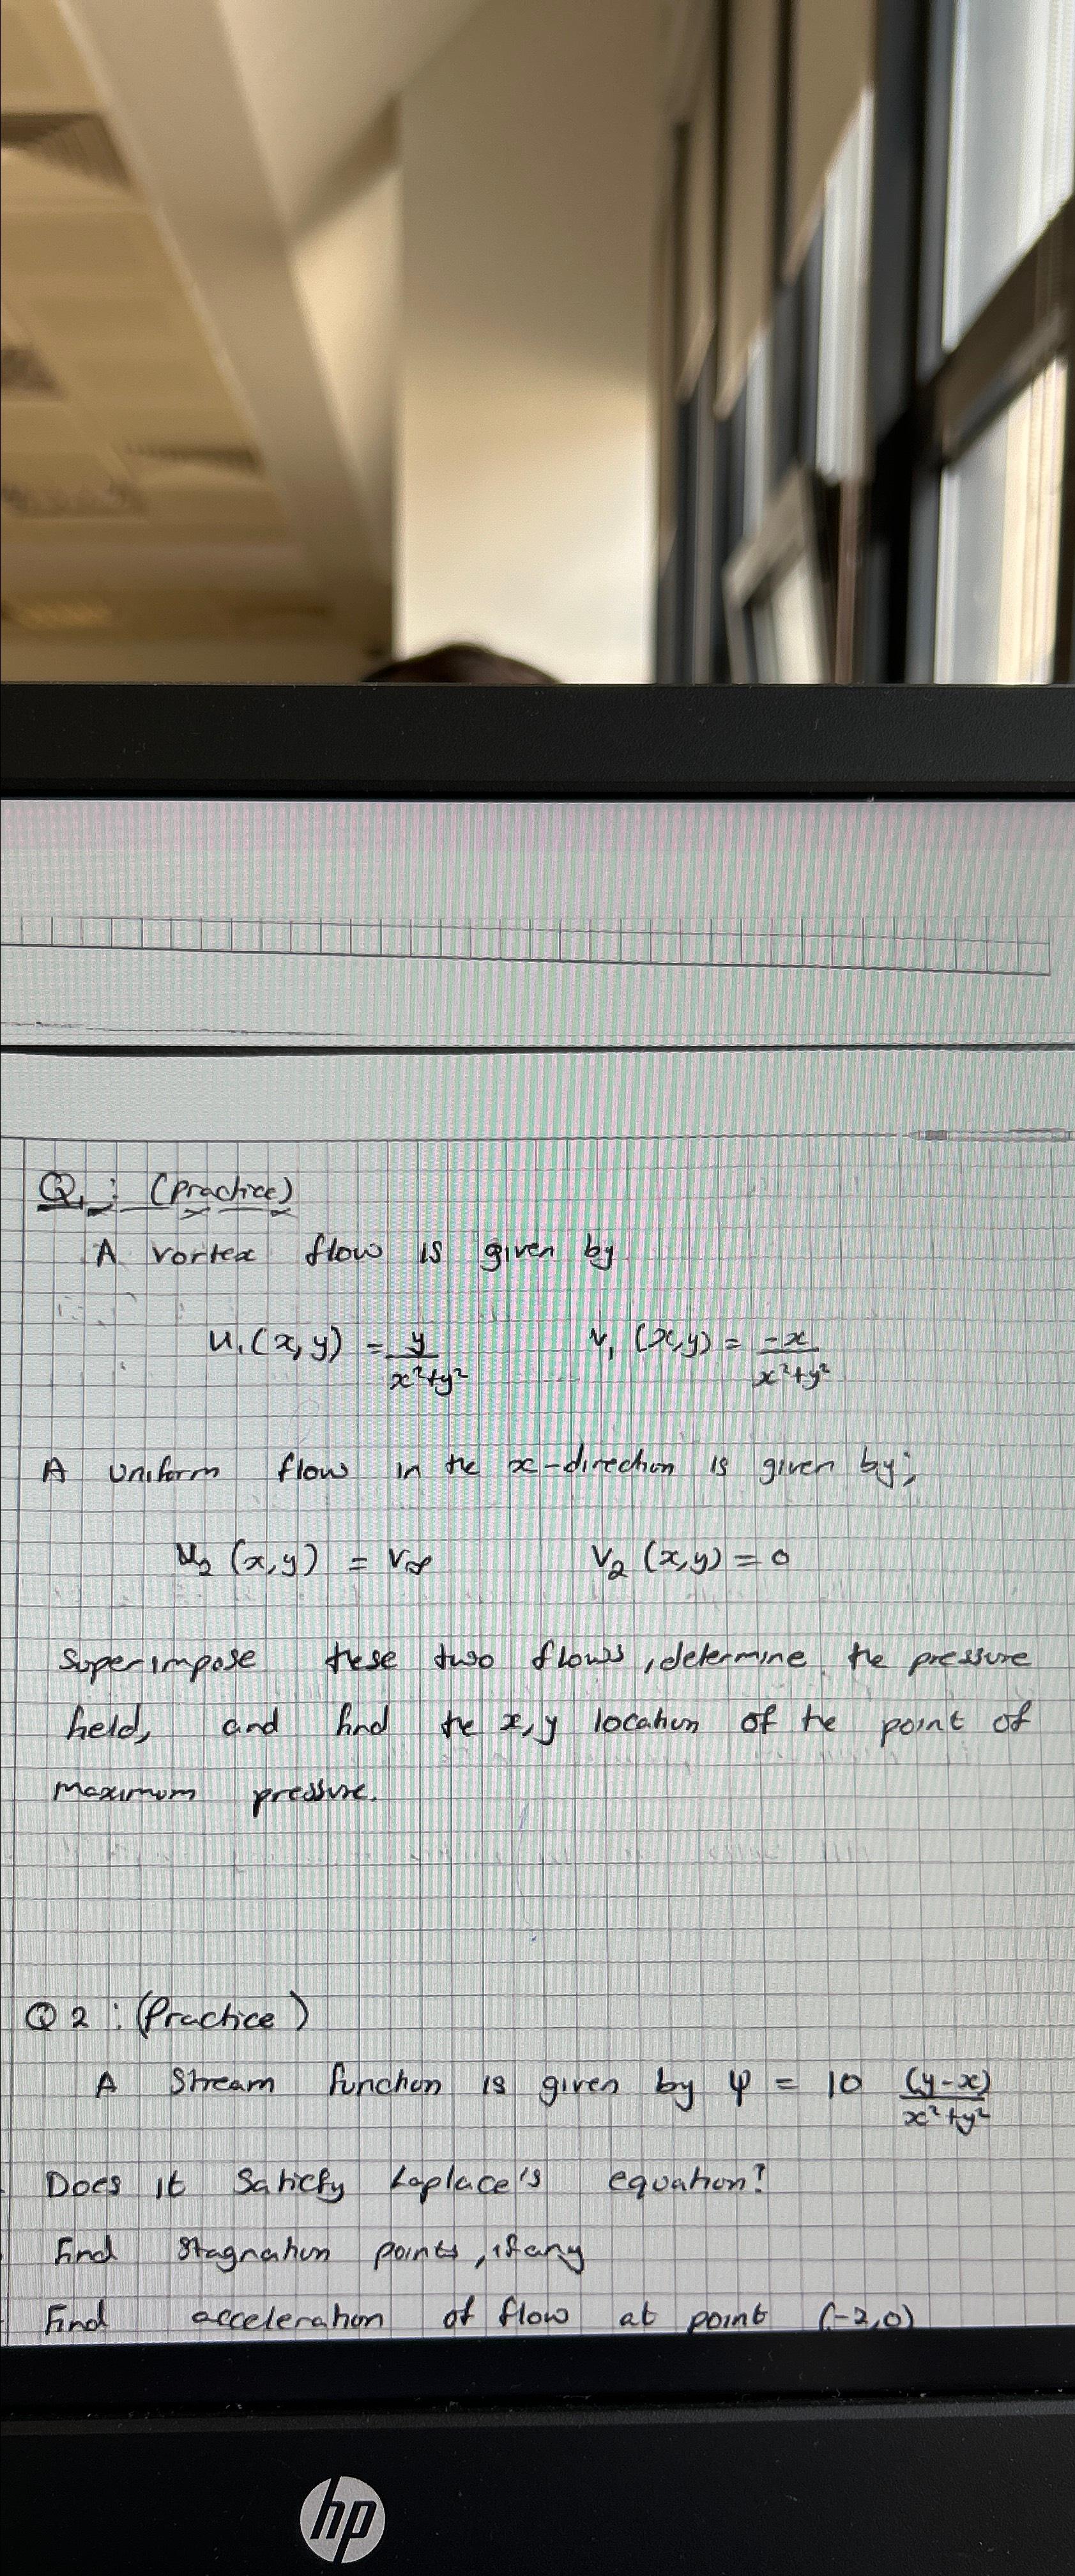 Q1: (practice)
A vortex flow is given by
u₁(x,y) = y/(x²+y²) v₁(x,y) = -x/(x²+y²)
A uniform flow in the x-direction is given by;
u₂(x,y) = V∞ V₂(x,y) = 0
Superimpose these two flows, determine the pressure
field, and find the x,y location of the point of
maximum pressure.
Q2: (Practice)
A stream function is given by ψ = 10 (y-x)/(x²+y²)
Does it Saticfy Laplace's equation?
Find stagnation points, if any
Find acceleration of flow at point (-2,0)
hp